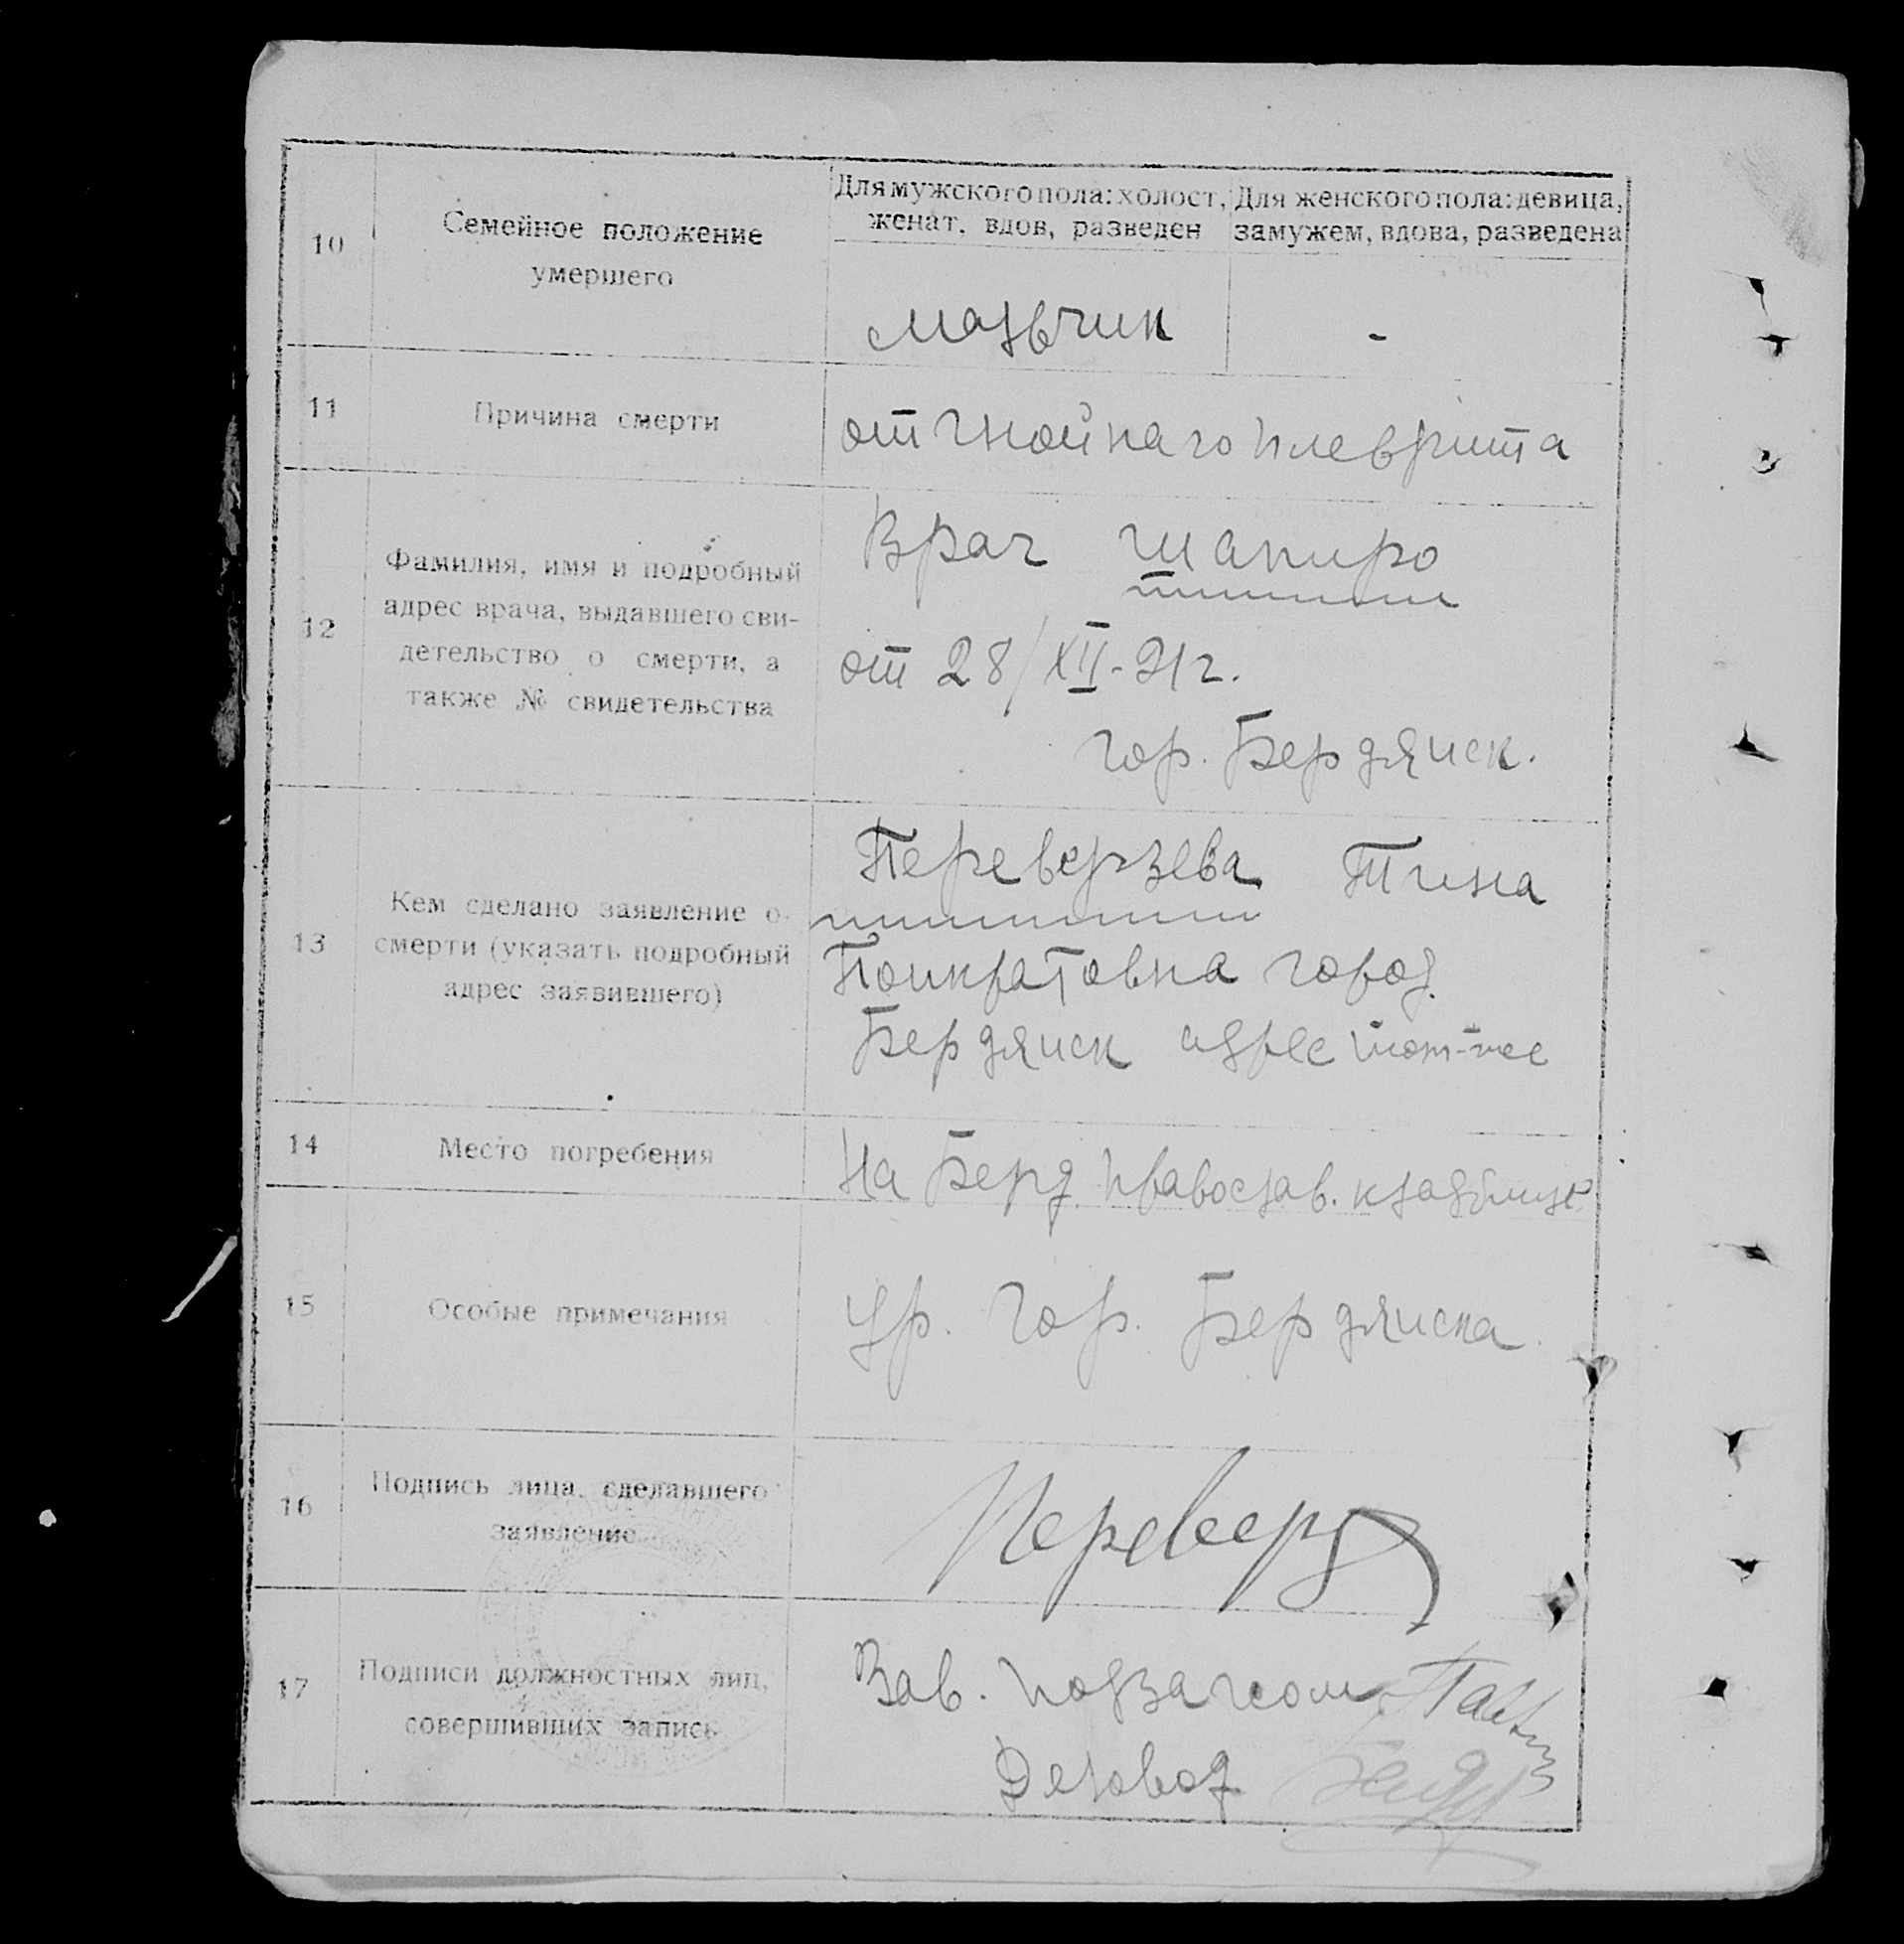 10
Семейное положение
умершего
Для мужского пола: холост,
женат, вдов, разведен
Для женского пола: девица,
замужем, вдова, разведена
мальчик
-
11
Причина смерти
от гнойнаго плеврита
12
Фамилия, имя и подробный
адрес врача, выдавшего сви-
детельство о смерти, а
также № свидетельства
Врач Шапиро
от 28/XII-21г.
гор. Бердянск.
13
Кем сделано заявление о
смерти (указать подробный
адрес заявившего)
Переверзева Тина
Понкратовна город
Бердянск адрес тот-же
14
Место погребения
На Берд. Православ. кладбище
15
Особые примечания
Ур. гор. Бердянска.
16
Подпись лица, сделавшего
заявление
Переверз
17
Подписи должностных лиц,
совершивших запись
Зав. подзагсом
Деловод